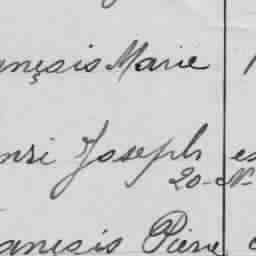 ançois Marie
nri Joseph es
20-N-
ançois Pierre